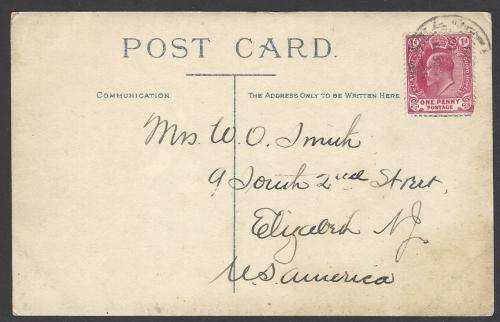 POST CARD.
COMMUNICATION
THE ADDRESS ONLY TO BE WRITTEN HERE
ONE PENNY
POSTAGE
Mrs W. O. Smith
9 South 2nd Street,
Elizabeth NJ
U.S. america